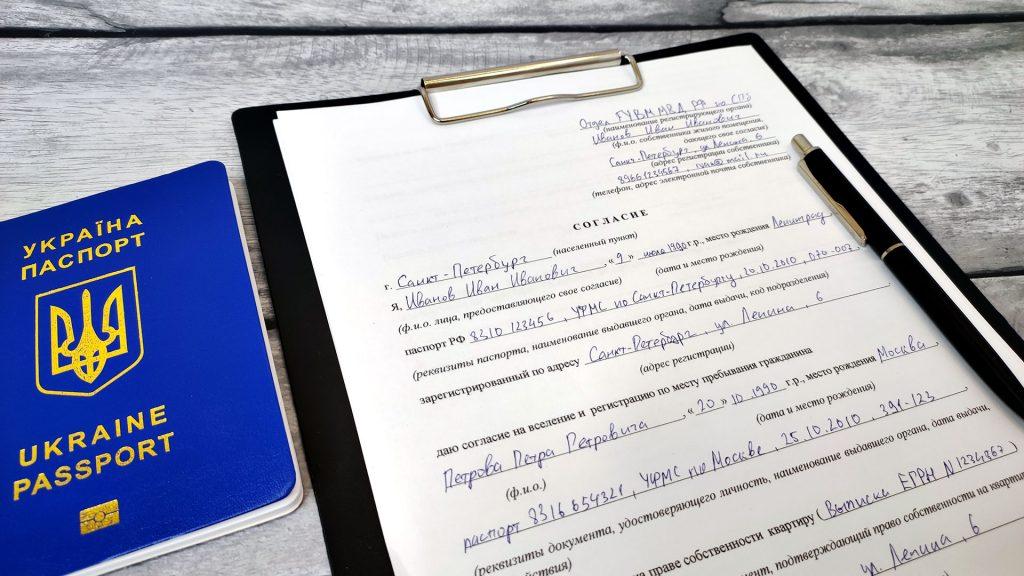 УКРАЇНА
ПАСПОРТ
UKRAINE
PASSPORT
Отдел ГУВМ МВД РФ по СПб
(наименование регистрирующего органа)
Иванов Иван Иванович
(ф.и.о. собственника жилого помещения,
дающего свое согласие)
Санкт-Петербург, ул. Ленина, 6
(адрес регистрации собственника)
89661234567, ivan@mail.ru
(телефон, адрес электронной почты собственника)
СОГЛАСИЕ
г. Санкт-Петербург
(населенный пункт)
Я, Иванов Иван Иванович, «9» июля 1990 г.р., место рождения Ленинград,
(ф.и.о. лица, предоставляющего свое согласие) (дата и место рождения)
паспорт РФ 8310 123456, УФМС по Санкт-Петербургу, 20.10.2010, 070-007,
(реквизиты паспорта, наименование выдавшего органа, дата выдачи, код подразделения)
зарегистрированный по адресу Санкт-Петербург, ул. Ленина, 6
(адрес регистрации)
даю согласие на вселение и регистрацию по месту пребывания гражданина
Петрова Петра Петровича, «20» 10 1990 г.р., место рождения Москва,
(ф.и.о.) (дата и место рождения)
паспорт 8316 654321, УФМС по Москве, 25.10.2010, 391-123
(реквизиты документа, удостоверяющего личность, наименование выдавшего органа, дата выдачи,
действия)
на праве собственности квартиру (Выписка ЕГРН N1234567)
документ, подтверждающий право собственности на квартиру
ул. Ленина, 6